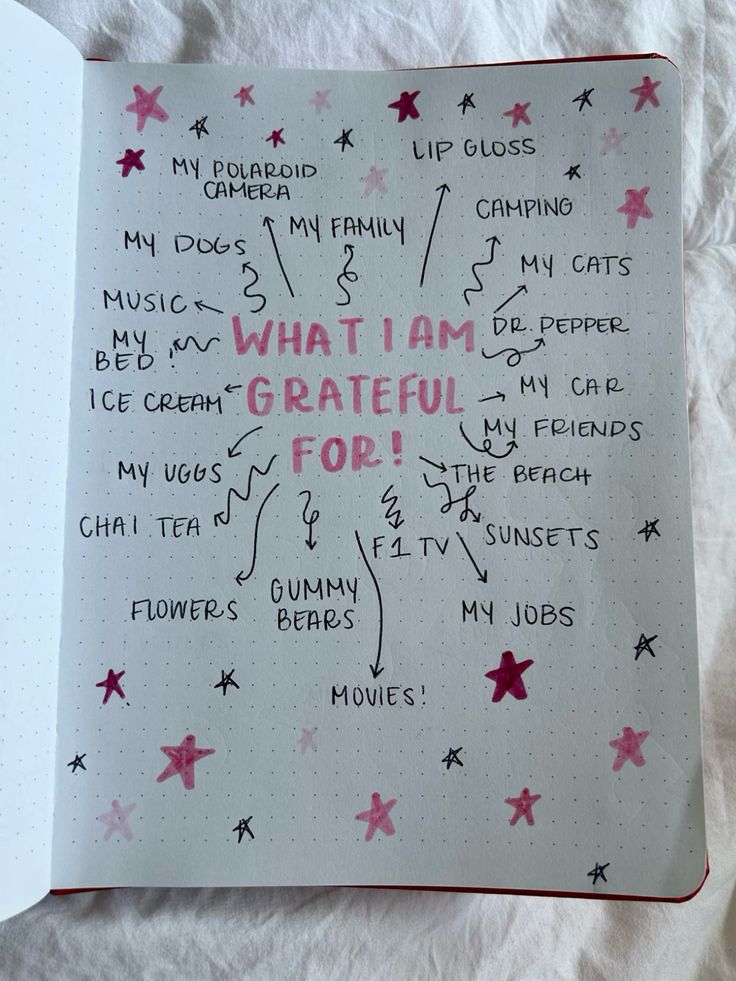 LIP GLOSS
MY POLAROID
CAMERA
CAMPING
MY FAMILY
MY DOGS
MY CATS
MUSIC
WHAT I AM
DR. PEPPER
MY
BED!
GRATEFUL
MY CAR
ICE CREAM
MY FRIENDS
FOR!
MY UGGS
THE BEACH
CHAI TEA
SUNSETS
F1 TV
FLOWERS
GUMMY
BEARS
MY JOBS
MOVIES!